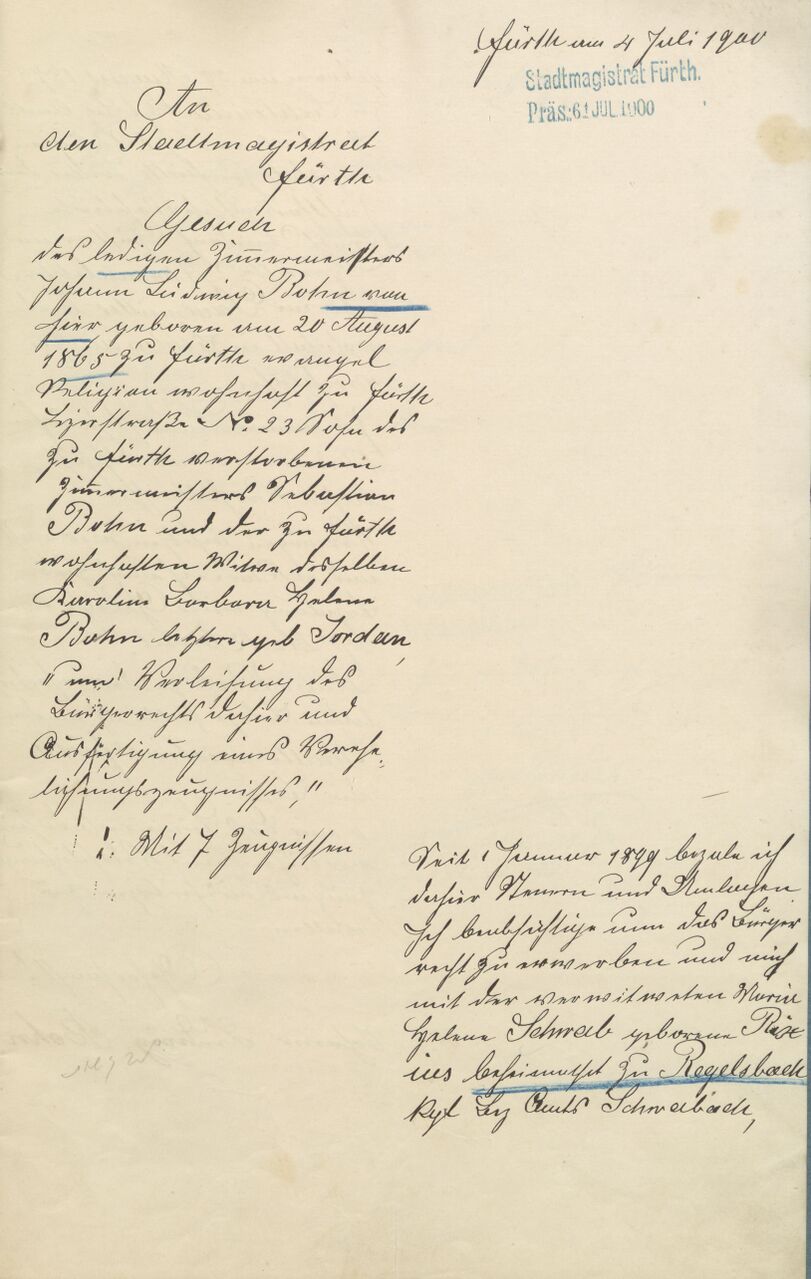 Fürth am 4 Juli 1900
Stadtmagistrat Fürth.
Präs.: 6 JUL. 1900
An
den Stadtmagistrat
Fürth
Gesuch
des ledigen Zimmermeisters
Johann Ludwig Bohn von
hier geboren am 20 August
1865 zu Fürth evangel
Religion wohnhaft zu Fürth
No. 23 Sohn des
zu Fürth verstorbenen
Zimmermeisters Sebastian
Bohn und der zu Fürth
wohnhaften Witwe desselben
Karolina Barbara Helene
Bohn letztere geb Jordan,
"um" Verleihung des
Bürgerrechts dahier und
Ausfertigung eines Verehe-
lichungszeugnisses,"
Mit 7 Zeugnissen
Seit 1 Januar 1899 bezale ich
dahier Steuern und Umlagen
Ich beabsichtige nun das Bürger
recht zu erwerben und mich
mit der verwitweten Maria
Helene Schwab geborene
beheimathet zu Regelsbach
kgl Bez Amts Schwabach,